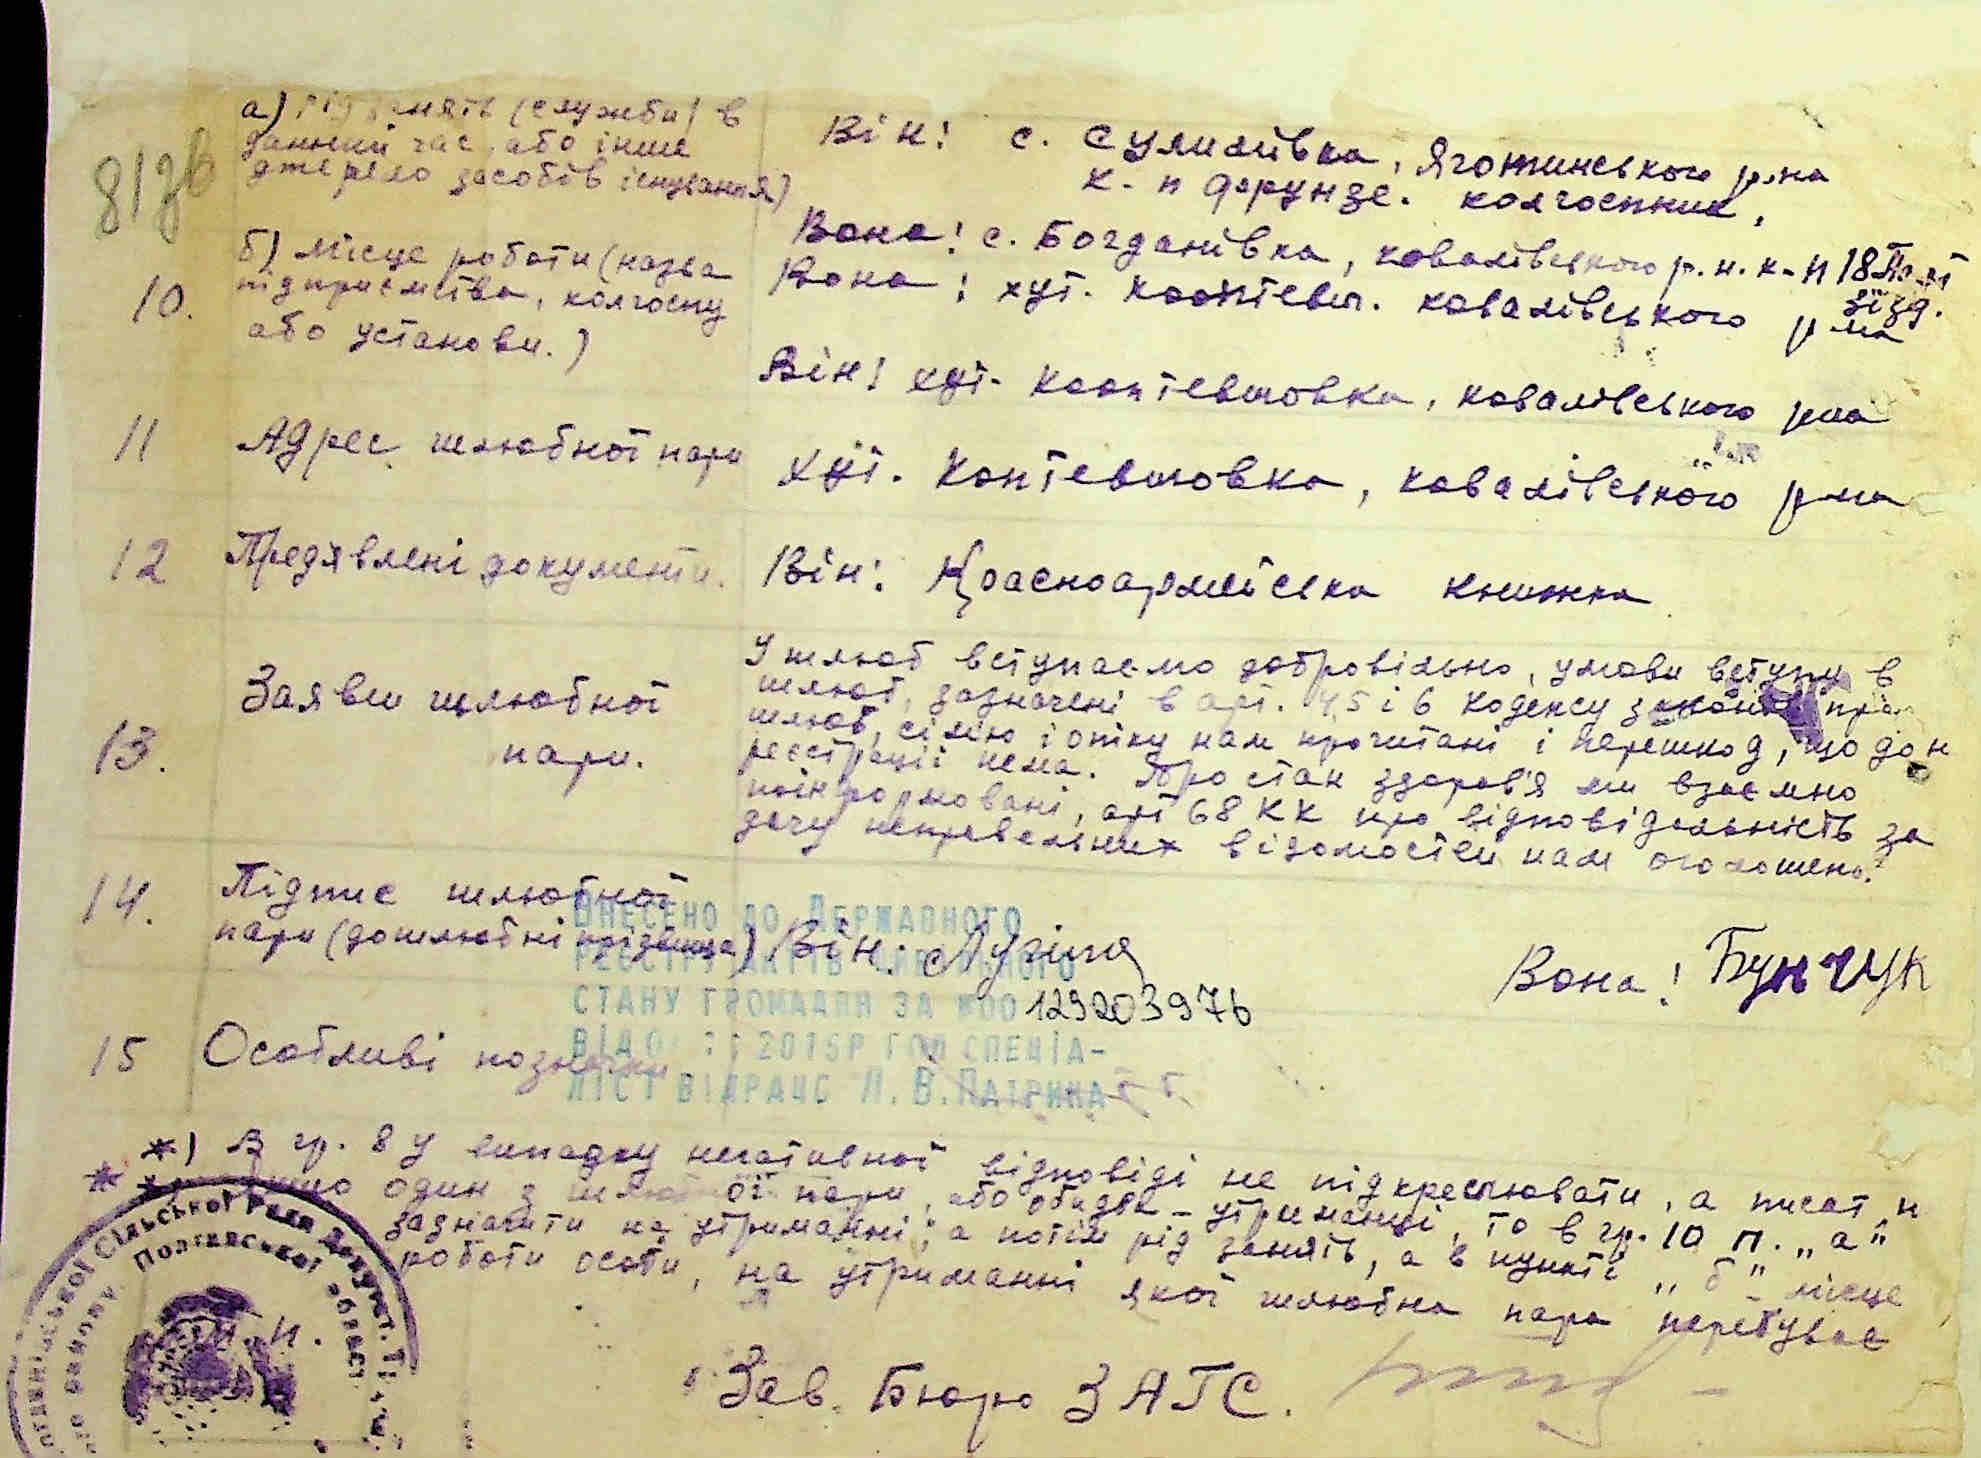 81зв
а) рід занять (служби) в
данний час, або інше
джерело засобів існування)
Він: с. Сулимівка, Яготинського р.на
к-п Фрунзе. колгоспник,
10.
б) місце роботи (назва
підприємства, колгоспу
або установи.)
Вона: с. Богданівка, Ковалівського р.н. к-п 18 Парт
зїзд.
Вона: хут. Ковалівського р-на
Він: хут. Ковалівського р-на
11 Адрес шлюбної пари
хут. Коптевшовка, Ковалівського р-на
12 Предявлені документи.
Він: Красноармійська книжка
13.
Заяви шлюбної
пари.
У шлюб вступаємо добровільно, умови вступу в
шлюб, зазначені в арт. 4,5 і 6 Кодексу законів про
шлюб, сімю і опіку нам прочитані і перешкод, що до н
реєстрації нема. Про стан здоров'я ми взаємно
поінформовані, арт 68 КК про відповідальність за
дачу неправельних відомостей нам оголошено.
14.
Підпис шлюбної
пари (дошлюбні прізвища)
Він: Лузіпа
Вона: Бунчук
ВНЕСЕНО ДО ДЕРЖАВНОГО
РЕЄСТРУ АКТІВ ЦИВІЛЬНОГО
СТАНУ ГРОМАДЯН ЗА №00129203976
ВІД 2015Р ГОЛ СПЕЦІА-
ЛІСТ ВІДРАЦС Л. В. ПАТРИКА
15 Особливі позначки
*) В гр. 8 у випадку негативної відповіді не підкреслювати, а писат н
**) Якщо один з шлюбної пари, або обидва - утриманці, то в гр. 10 п. „а"
зазначити на утриманні, а потім рід занять, а в пункті „б" - місце
роботи особи, на утриманні якої шлюбна пара перебуває
м. п.
Зав. Бюро ЗАГС.
Сільської Ради Депутат.
району Полтавської област